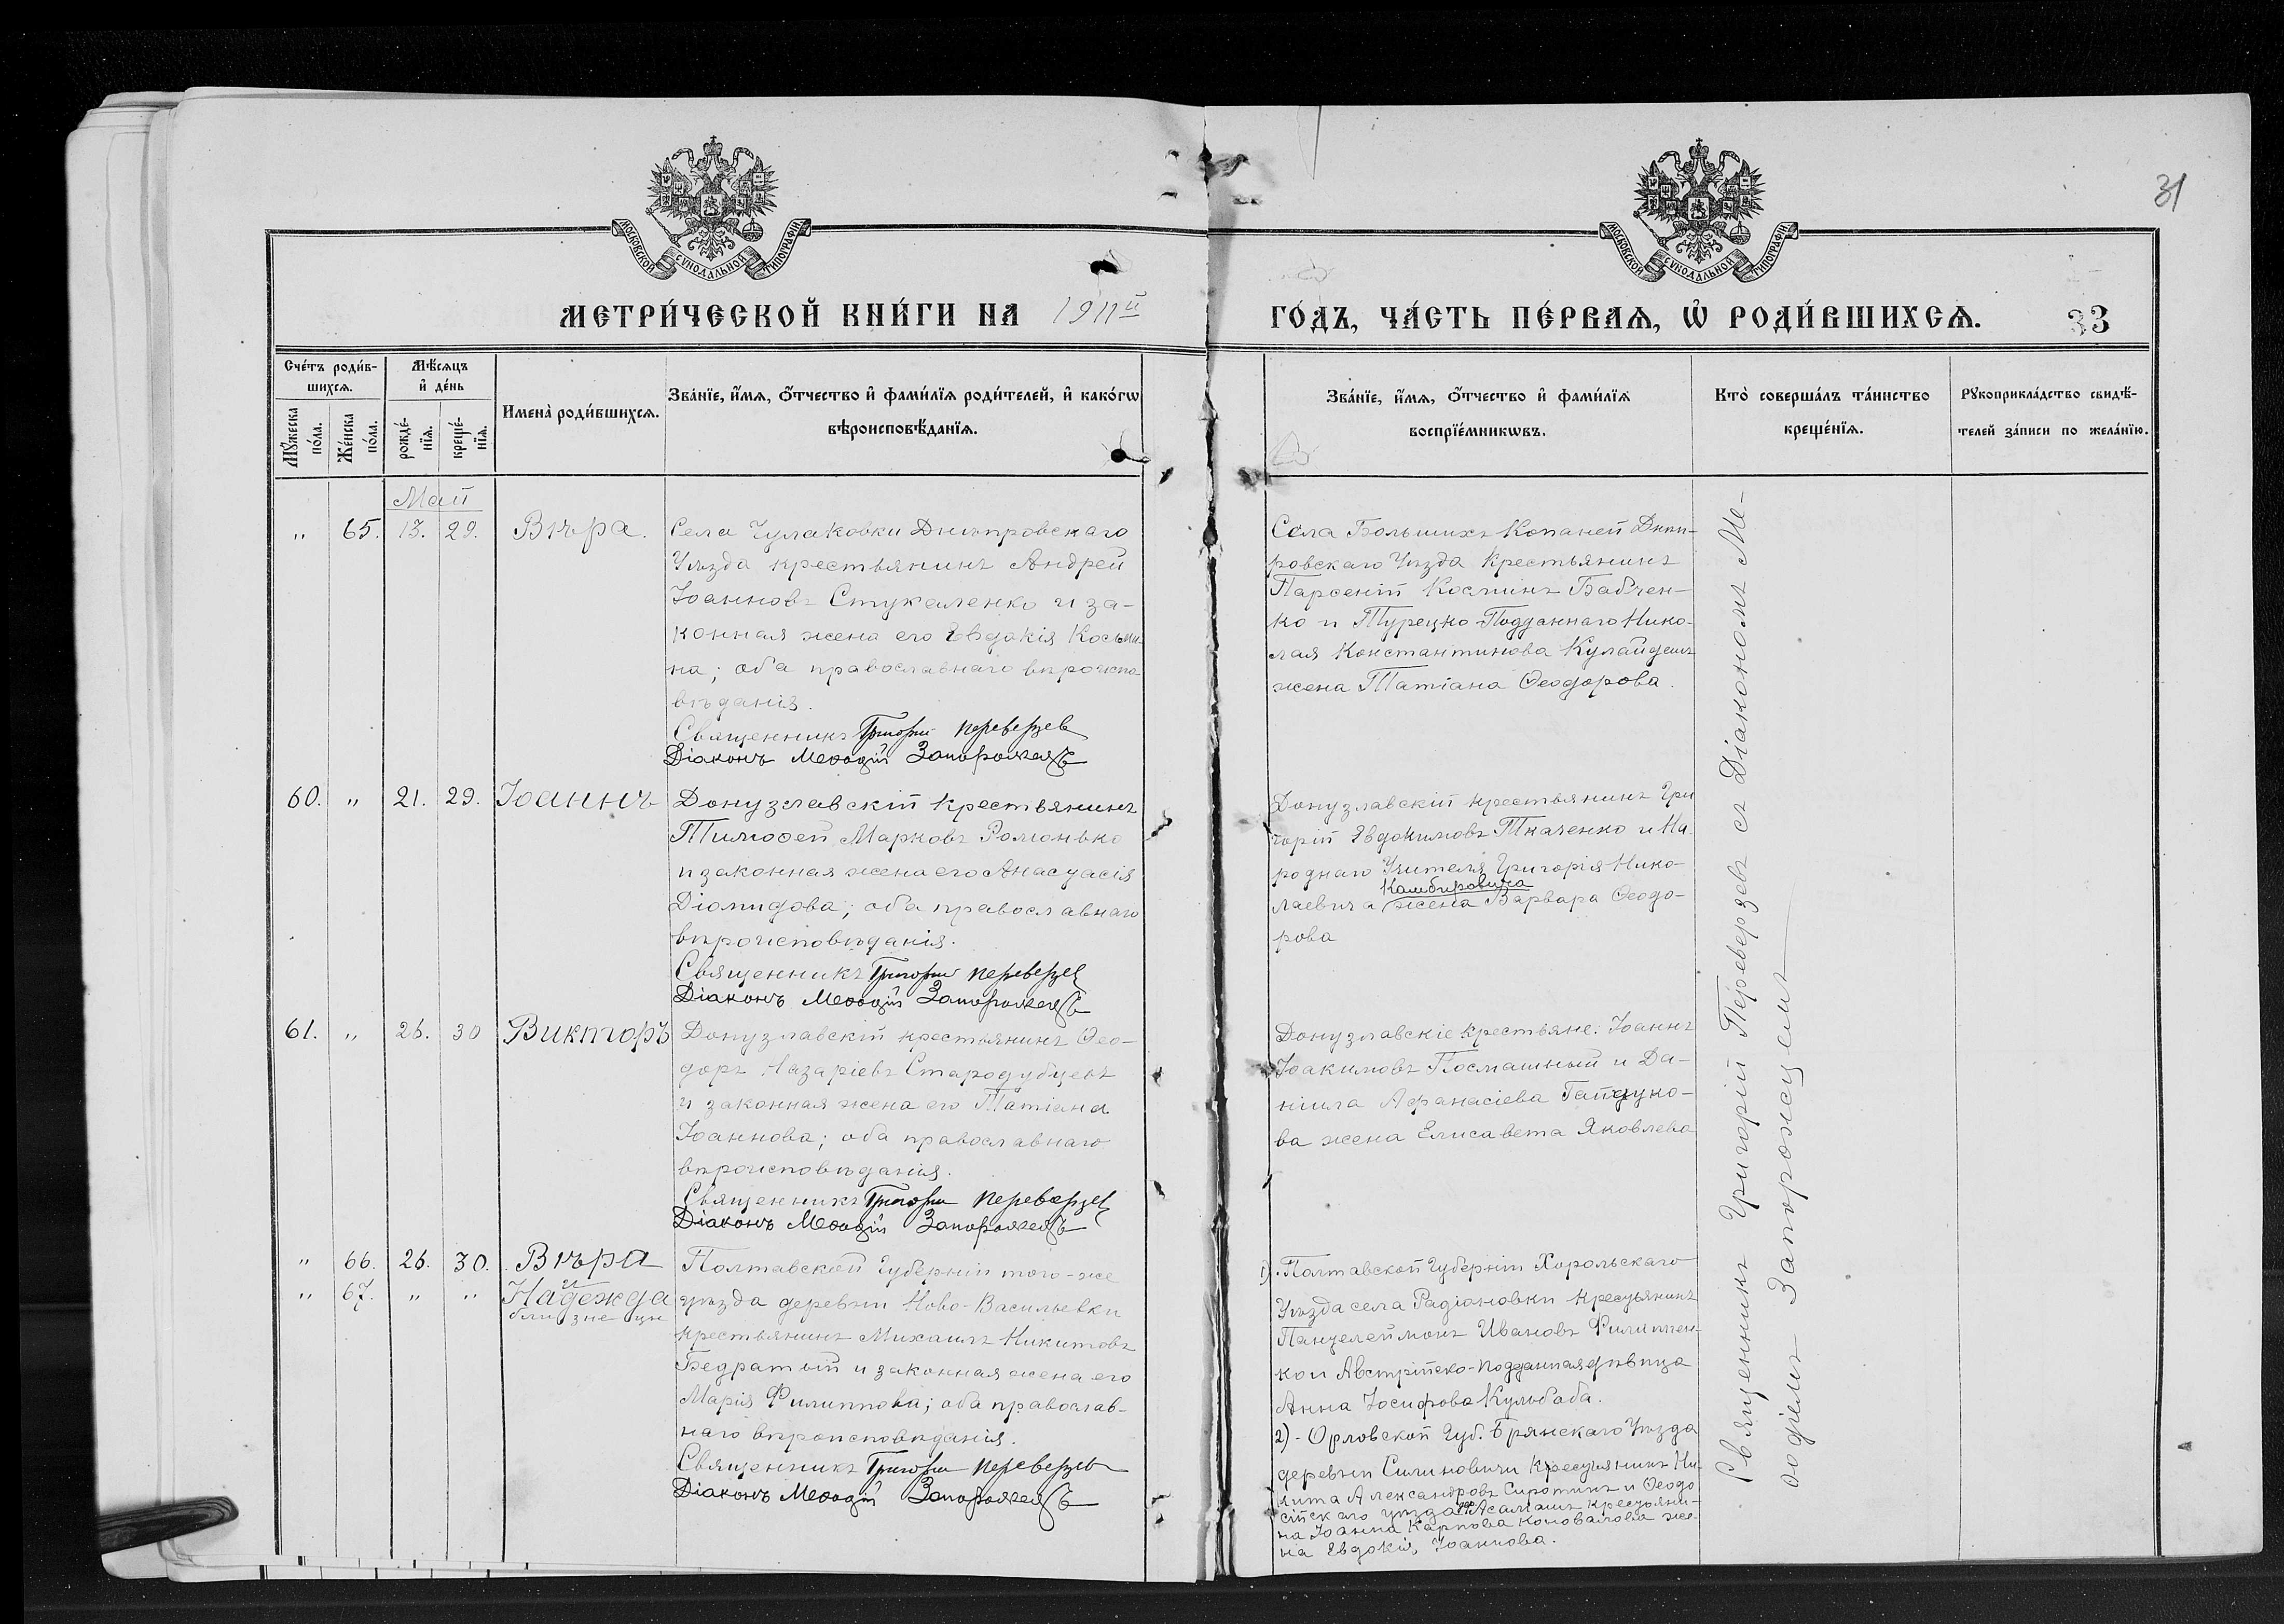 31
МОСКОВСКОЙ СѴНОДАЛЬНОЙ ТИПОГРАФІИ
МОСКОВСКОЙ СѴНОДАЛЬНОЙ ТИПОГРАФІИ
МЕТРИ́ЧЕСКОЙ КНИ́ГИ НА 1911й
ГО́ДЪ, ЧА́СТЬ ПЕ́РВАѦ, Ѡ҆ РОДИ́ВШИХСѦ. 33
Сче́тъ роди́в-
шихсѧ.
Мꙋ́жеска по́ла.
Же́нска по́ла.
Мѣ́сѧцъ
и҆ де́нь
рожде́-
нїѧ.
креще́-
нїѧ.
Имена̀ роди́вшихсѧ.
Зва́нїе, и҆́мѧ, ѻ҆́тчество и҆ фами́лїѧ роди́телей, и҆ како́гѡ
вѣроисповѣ́данїѧ.
Зва́нїе, и҆́мѧ, ѻ҆́тчество и҆ фами́лїѧ
воспрїе́мникѡвъ.
Кто̀ соверша́лъ та́инство
креще́нїѧ.
Рꙋкоприкла́дство свидѣ́-
телей за́писи по жела́нїю.
Май
" 65. 13. 29. Вѣра.
Села Чулаковки Днѣпровскаго
Уѣзда крестьянинъ Андрей
Іоанновъ Стукаленко и за-
конная жена его Евдокія Косьми-
на; оба православнаго вѣроиспо-
вѣданія.
Священникъ Григорій Переверзев
Діаконъ Меѳодій Запорожецъ
Села Большихъ Копаней Днѣп-
ровскаго Уѣзда Крестьянинъ
Парсеній Косминъ Бабчен-
ко и Турецко-Подданнаго Нико-
лая Константинова
жена Татіана Ѳеодорова.
60. " 21. 29. Іоаннъ
Донузлавскій крестьянинъ
Тимоѳей Марковъ Romoнько
и законная жена его Анастасія
Діомидова; оба православнаго
вѣроисповѣданія.
Священникъ Григорій Переверзев
Діаконъ Меѳодій Запорожецъ
Донузлавскій крестьянинъ Гри
горій Евдокимовъ Ткаченко и На-
роднаго Учителя Григорія Нико-
лаевича Камбуровича жена Варвара Ѳеодо-
рова
61. " 26. 30 Викторъ
Донузлавскій крестьянинъ Ѳео-
доръ Назаріевъ Стародубцевъ
и законная жена его Татіана
Іоаннова; оба православнаго
вѣроисповѣданія.
Священникъ Григорій Переверзев
Діаконъ Меѳодій Запорожецъ
Донузлавскіе крестьяне: Іоаннъ
Іоакимовъ Посмашный и Да-
ніила Афанасіева Гайдуко-
ва жена Елисавета Яковлева
" 66. 26. 30. Вѣра
и
" 67. " " Надежда
близнецы
Полтавской Губерніи того-же
уѣзда деревни Ново-Васильевки
крестьянинъ Михаилъ Никитовъ
Бедратый и законная жена его
Марія Филиппова; оба православ-
наго вѣроисповѣданія.
Священникъ Григорій Переверзев
Діаконъ Меѳодій Запорожецъ
1). Полтавской Губерніи Хорольскаго
Уѣзда села Радіановки Крестьянинъ
Пантелеймонъ Ивановъ Филиппен-
ко и Австрійско-подданная дѣвица
Анна Іосифова Кульбаба.
2) - Орловской Губ. Брянскаго Уѣзда
деревни Силиновичи Крестьянинъ Ни-
кита Александровъ Сиротинъ и Ѳеодо
сійскаго уѣзда дер. крестьяни-
на Іоанна Карпова Коновалова же-
на Евдокія Іоаннова.
Священникъ Григорій Переверзевъ съ Діакономъ Ме-
ѳодіемъ Запорожцемъ